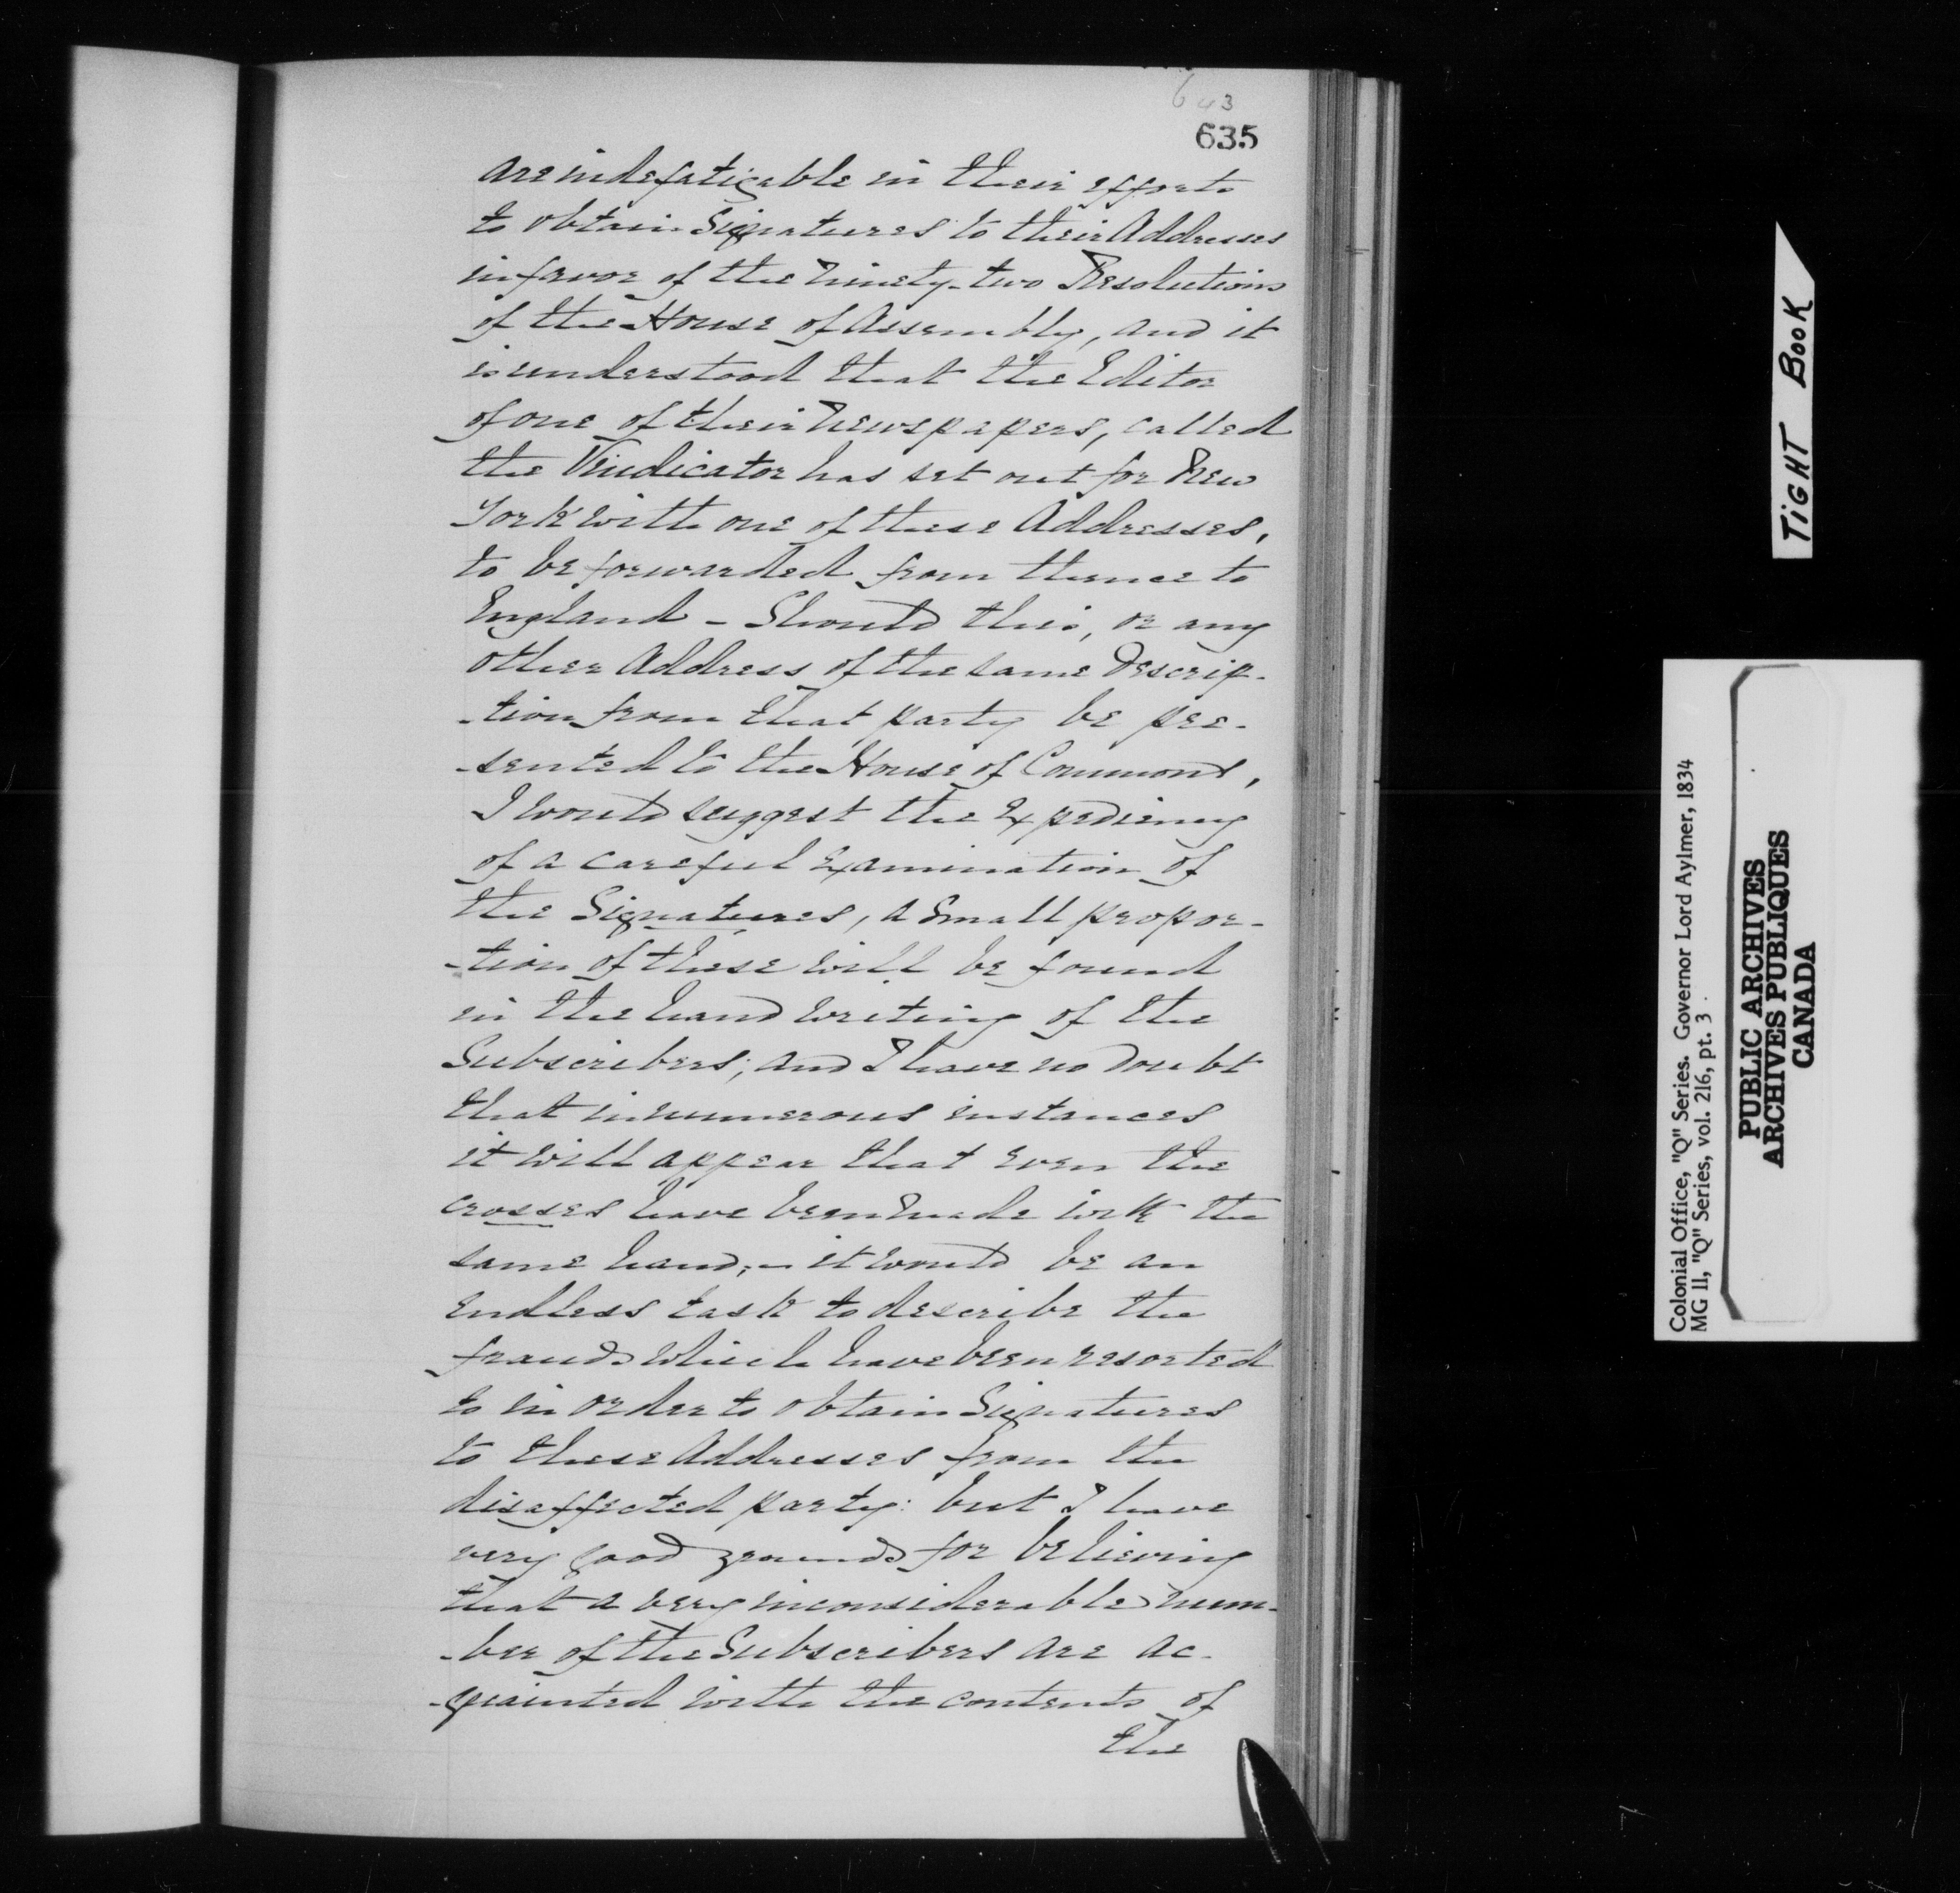 643
635
are indefatigable in their efforts
to obtain Signatures to their Addresses
in favor of the Ninety-two Resolutions
of the House of Assembly, and it
is understood that the Editor
of one of their Newspapers, called
the Vindicator has set out for New
York with one of these Addresses,
to be forwarded from thence to
England - Should this, or any
other Address of the same Descrip-
-tion from that party be pre-
-sented to the House of Commons,
I would suggest the Expediency
of a careful Examination of
the Signatures, a Small propor-
-tion of these will be found
in the hand writing of the
Subscribers; and I have no doubt
that in numerous instances
it will appear that even the
crosses have been made with the
same hand; - it would be an
endless task to describe the
frauds which have been resorted
to in order to obtain Signatures
to these Addresses from the
disaffected party: but I have
very good grounds for believing
that a very inconsiderable num-
-ber of the Subscribers are ac-
-quainted with the contents of
the
TIGHT BOOK
Colonial Office, "Q" Series. Governor Lord Aylmer, 1834
MG 11, "Q" Series, vol. 216, pt. 3
PUBLIC ARCHIVES
ARCHIVES PUBLIQUES
CANADA